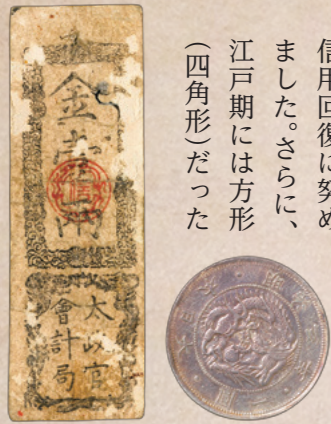 信用回復に努め
ました。さらに、
江戸期には方形
（四角形）だった
金壹兩
太政官
會計局